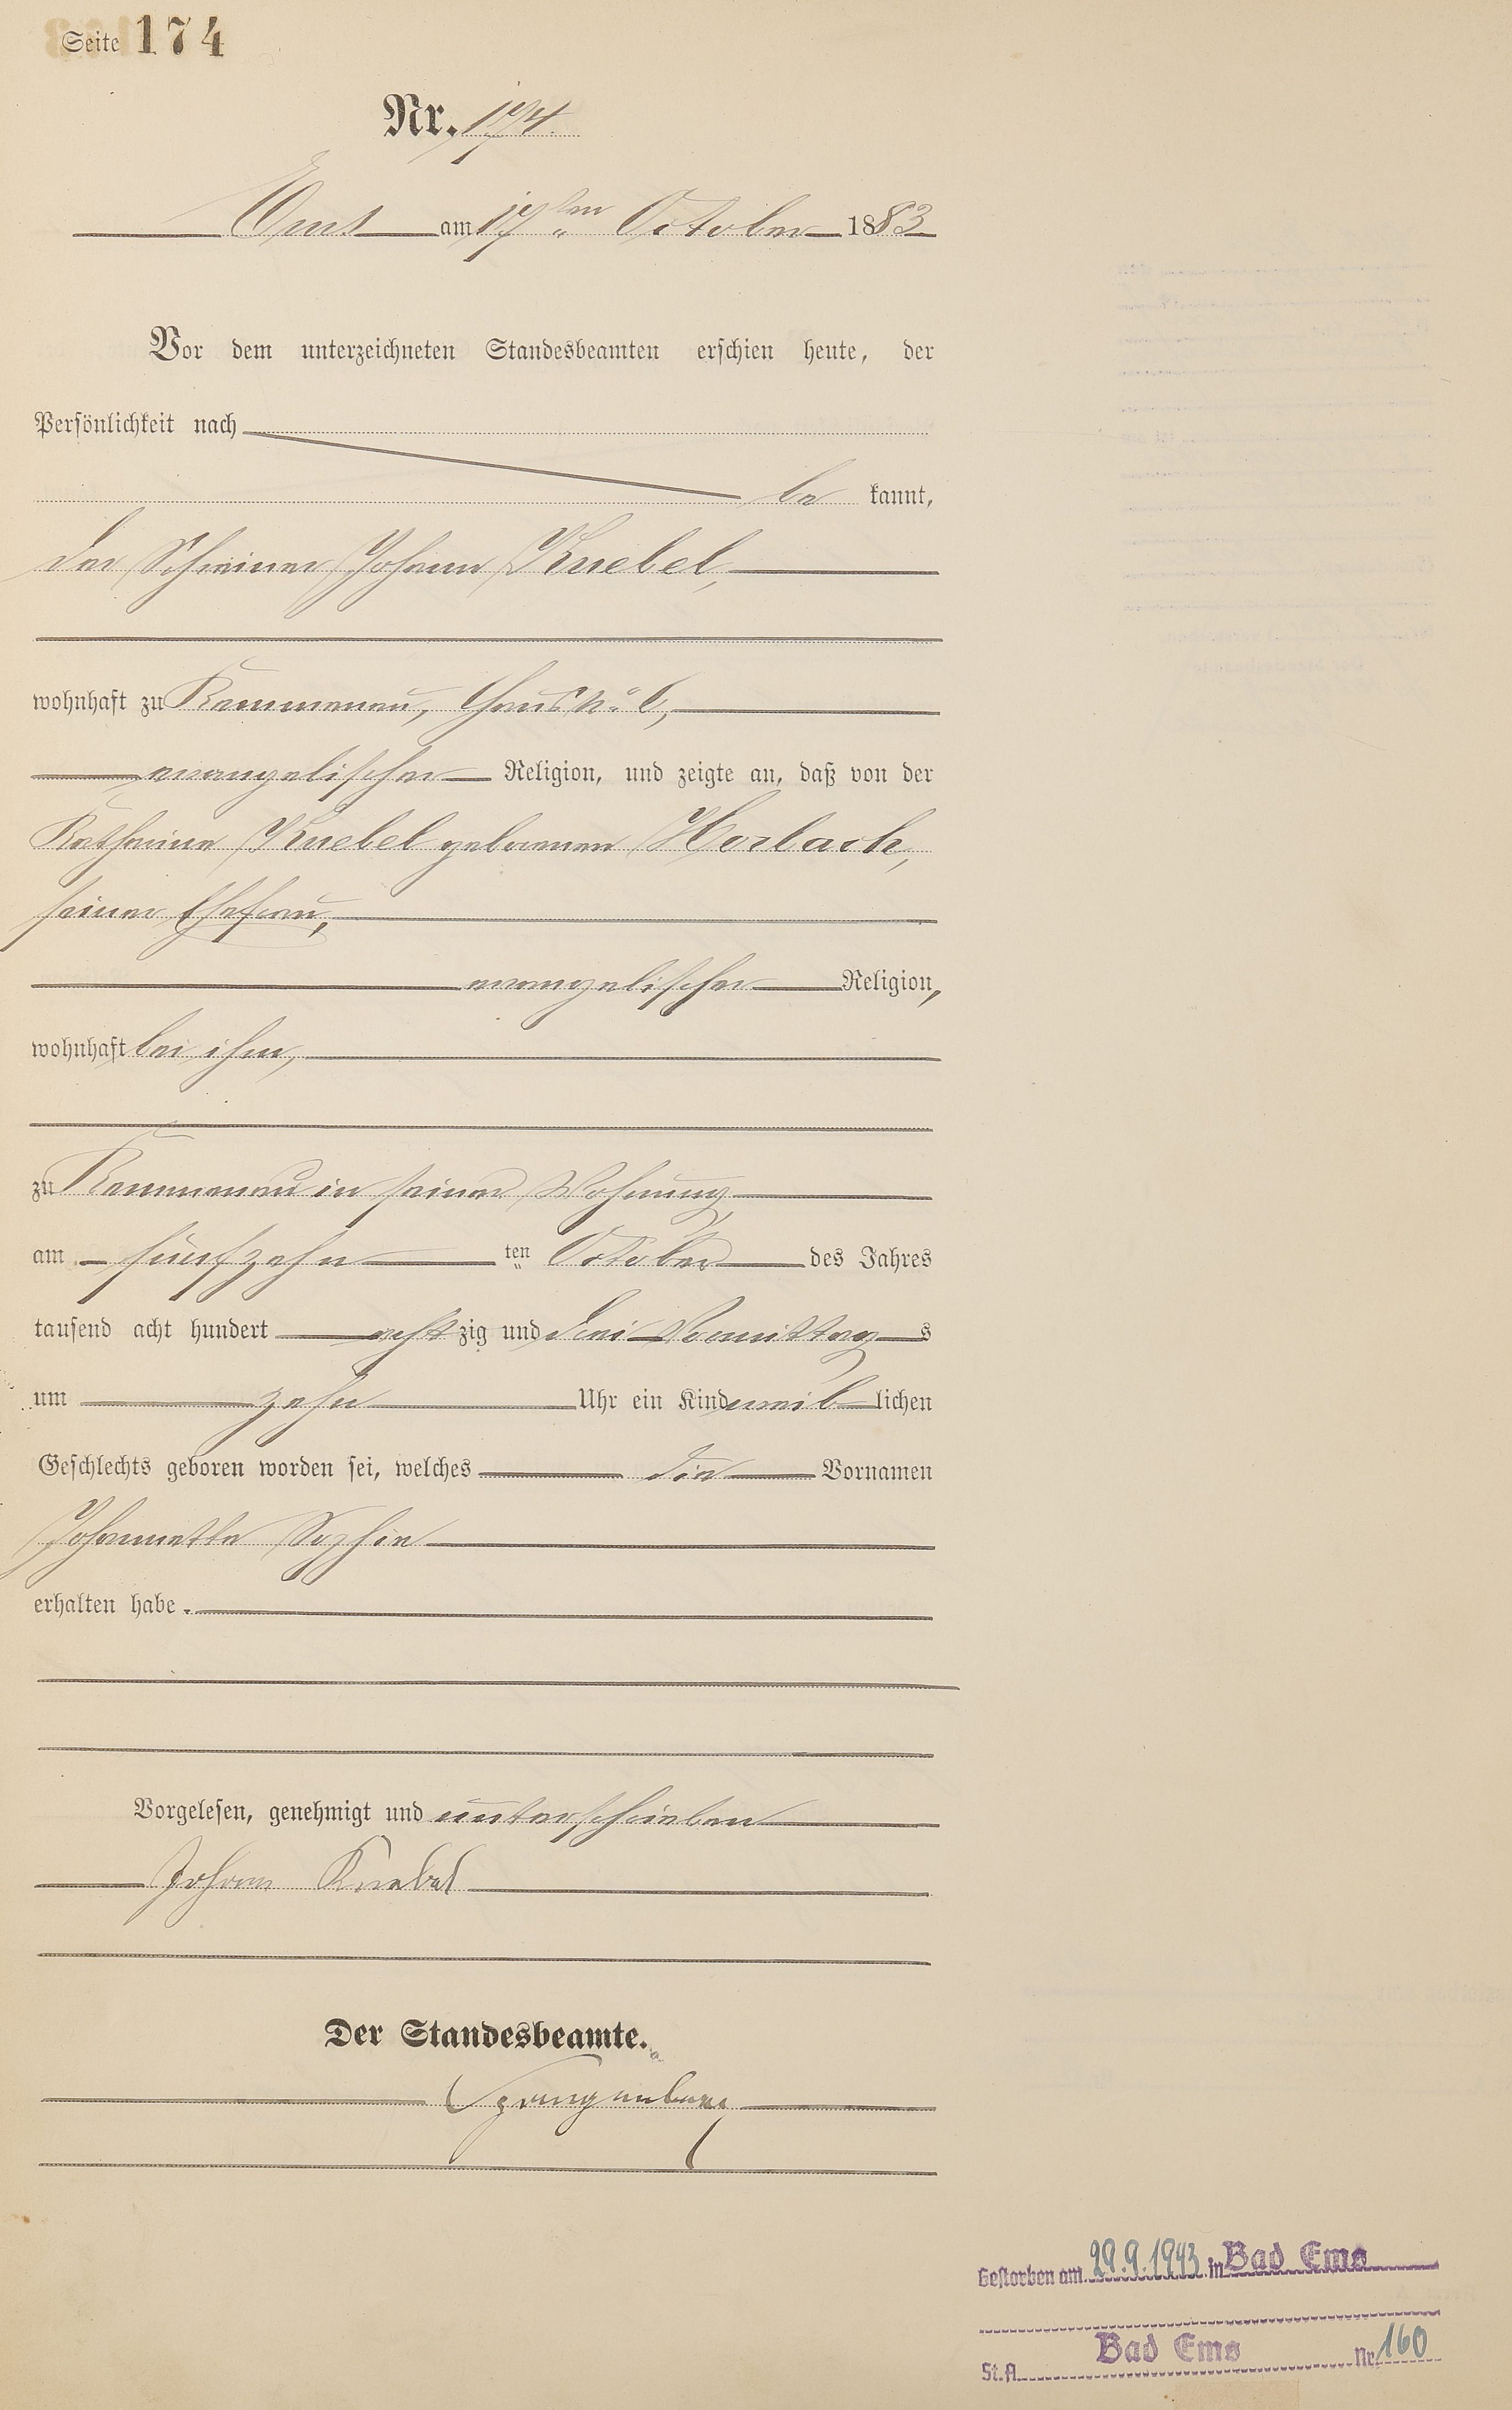 Seite 174
Nr. 174.
Ems am 17ten October 1883
Vor dem unterzeichneten Standesbeamten erschien heute, der
Persönlichkeit nach
be kannt,
der Schreiner Johann Knebel,
wohnhaft zu Kemmenau, Haus No 6,
evangelischer Religion, und zeigte an, daß von der
Katharina Knebel geborenen Horbach,
seiner Ehefrau,
evangelischer Religion,
wohnhaft bei ihm,
zu Kemmenau in seiner Wohnung,
am fünfzehn ten October des Jahres
tausend acht hundert acht zig und drei Vormittag s
um zehn Uhr ein Kind weib lichen
Geschlechts geboren worden sei, welches die Vornamen
Johannette Sophie
erhalten habe.
Vorgelesen, genehmigt und unterschrieben
Johann Knebel
Der Standesbeamte.
Spangenberg
Gestorben am 29.9.1943 in Bad Ems
St.A. Bad Ems Nr. 160